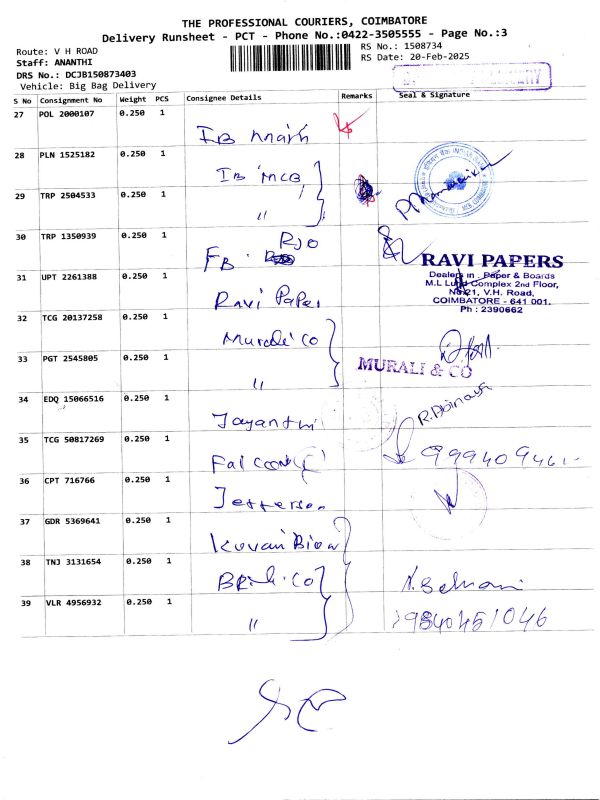 THE PROFESSIONAL COURIERS, COIMBATORE
Delivery Runsheet - PCT - Phone No.:0422-3505555 - Page No.:3
Route: V H ROAD
RS No.: 1508734
Staff: ANANTHI
RS Date: 20-Feb-2025
DRS No.: DCJB150873403
Vehicle: Big Bag Delivery
S No Consignment No Weight PCS Consignee Details Remarks Seal & Signature
27 POL 2000107 0.250 1
IB
28 PLN 1525182 0.250 1
IB MCB
29 TRP 2504533 0.250 1
"
30 TRP 1350939 0.250 1
FB. RJO
31 UPT 2261388 0.250 1
Ravi Paper
RAVI PAPERS
Dealers in : Paper & Boards
M.L Complex 2nd Floor,
No.21, V.H. Road,
COIMBATORE - 641 001.
Ph : 2390662
32 TCG 20137258 0.250 1
Murali Co
33 PGT 2545805 0.250 1
"
MURALI & CO
34 EDQ 15066516 0.250 1
Jayanthi
35 TCG 50817269 0.250 1
Falcon
36 CPT 716766 0.250 1
Jefferson
37 GDR 5369641 0.250 1
Kovai
38 TNJ 3131654 0.250 1
39 VLR 4956932 0.250 1
"